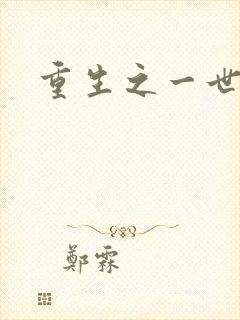 重生之一世
鄭霖